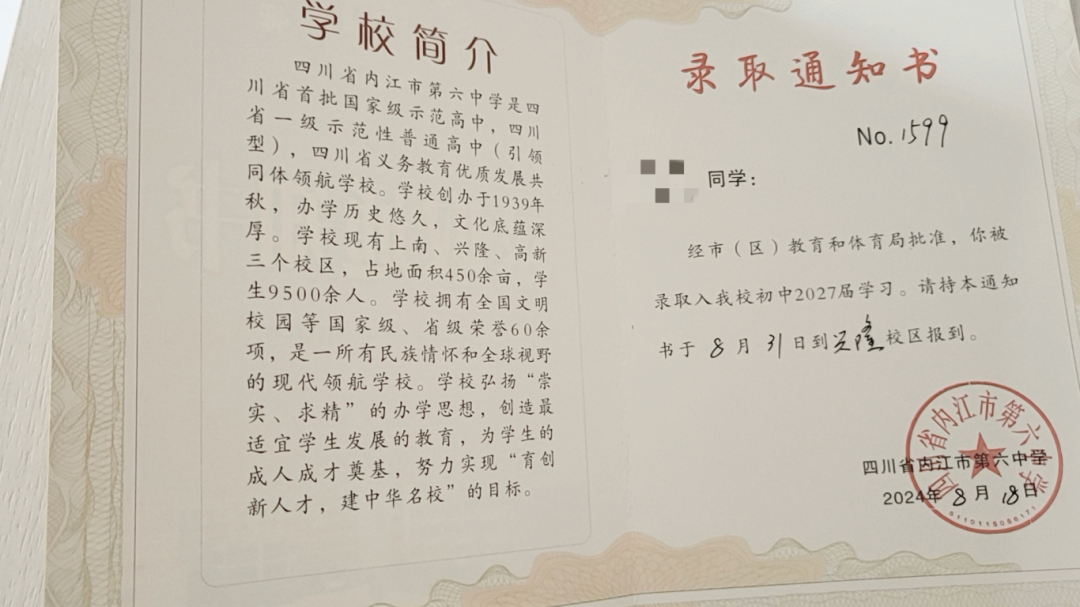 学校简介
四川省内江市第六中学是四
川省首批国家级示范高中，四川
省一级示范性普通高中（引领
型），四川省义务教育优质发展共
同体领航学校。学校创办于1939年
秋，办学历史悠久，文化底蕴深
厚。学校现有上南、兴隆、高新
三个校区，占地面积450余亩，学
生9500余人。学校拥有全国文明
校园等国家级、省级荣誉60余
项，是一所有民族情怀和全球视野
的现代领航学校。学校弘扬“崇
实、求精”的办学思想，创造最
适宜学生发展的教育，为学生的
成人成才奠基，努力实现“育创
新人才，建中华名校”的目标。
录取通知书
No.1599
同学：
经市（区）教育和体育局批准，你被
录取入我校初中2027届学习。请持本通知
书于8月31日到兴隆校区报到。
四川省内江市第六中学
2024年8月18日
四川省内江市第六中学